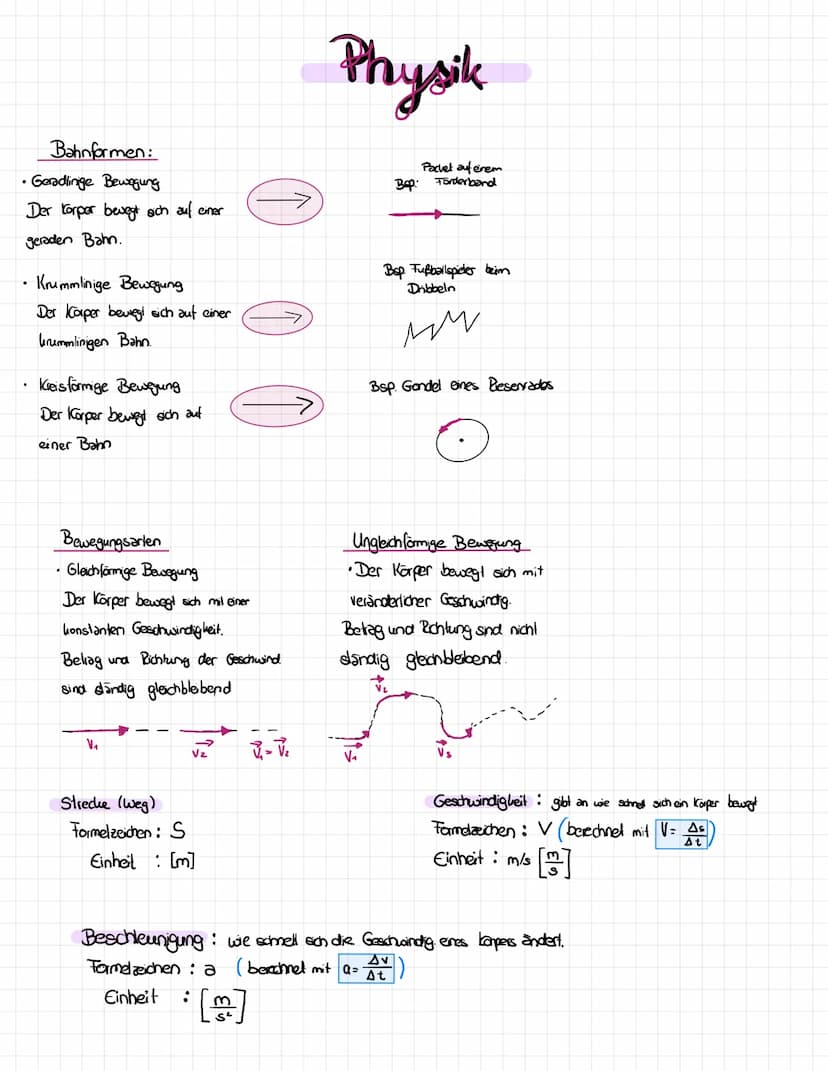 Physik
Bahnformen:
• Geradlinige Bewegung
Der Körper bewegt sich auf einer
geraden Bahn.
Packet auf einem
Bsp: Förderband
• Krummlinige Bewegung
Der Körper bewegt sich auf einer
krummlinigen Bahn.
Bsp Fußballspieler beim
Dribbeln
• Kreisförmige Bewegung
Der Körper bewegt sich auf
einer Bahn
Bsp. Gondel eines Riesenrades
Bewegungsarten
• Gleichförmige Bewegung
Der Körper bewegt sich mit einer
konstanten Geschwindigkeit.
Betrag und Richtung der Geschwind.
sind ständig gleichbleibend
V₁
V₂
V₁ = V₂
Ungleichförmige Bewegung
• Der Körper bewegt sich mit
veränderlicher Geschwindig.
Betrag und Richtung sind nicht
ständig gleichbleibend.
V₂
V₁
V₃
Strecke (Weg)
Formelzeichen: S
Einheit : [m]
Geschwindigkeit : gibt an wie schnell sich ein Körper bewegt
Formelzeichen : V (berechnet mit V = Δs/Δt)
Einheit : m/s [m/s]
Beschleunigung : wie schnell sich die Geschwindig. eines Körpers ändert.
Formelzeichen : a (berechnet mit a = Δv/Δt)
Einheit : [m/s²]